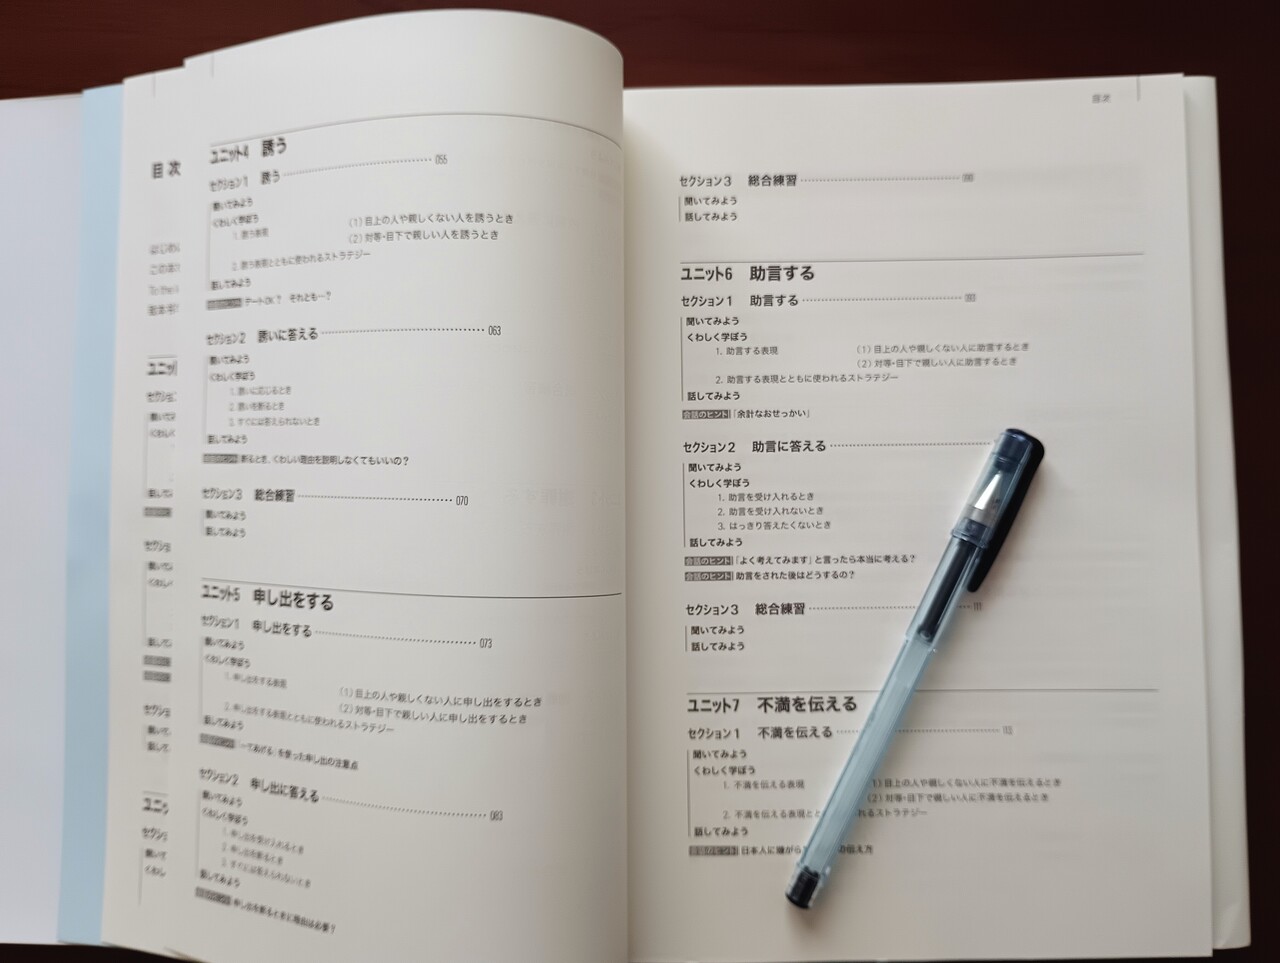 目次
ユニット4 誘う
セクション1 誘う 055
聞いてみよう
くわしく学ぼう
1. 誘う表現 (1) 目上の人や親しくない人を誘うとき
(2) 対等・目下で親しい人を誘うとき
2. 誘う表現とともに使われるストラテジー
話してみよう
会話のヒント デートOK? それとも…?
セクション2 誘いに答える 063
聞いてみよう
くわしく学ぼう
1. 誘いに応じるとき
2. 誘いを断るとき
3. すぐには答えられないとき
話してみよう
会話のヒント 断るとき、くわしい理由を説明しなくてもいいの?
セクション3 総合練習 070
聞いてみよう
話してみよう
ユニット5 申し出をする
セクション1 申し出をする 073
聞いてみよう
くわしく学ぼう
1. 申し出をする表現 (1) 目上の人や親しくない人に申し出をするとき
(2) 対等・目下で親しい人に申し出をするとき
2. 申し出をする表現とともに使われるストラテジー
話してみよう
会話のヒント 「〜てあげる」を使った申し出の注意点
セクション2 申し出に答える 083
聞いてみよう
くわしく学ぼう
1. 申し出を受け入れるとき
2. 申し出を断るとき
3. すぐには答えられないとき
話してみよう
会話のヒント 申し出を断るときに理由は必要?
目次
セクション3 総合練習
聞いてみよう
話してみよう
ユニット6 助言する
セクション1 助言する
聞いてみよう
くわしく学ぼう
1. 助言する表現 (1) 目上の人や親しくない人に助言するとき
(2) 対等・目下で親しい人に助言するとき
2. 助言する表現とともに使われるストラテジー
話してみよう
会話のヒント 「余計なおせっかい」
セクション2 助言に答える
聞いてみよう
くわしく学ぼう
1. 助言を受け入れるとき
2. 助言を受け入れないとき
3. はっきり答えたくないとき
話してみよう
会話のヒント 「よく考えてみます」と言ったら本当に考える?
会話のヒント 助言をされた後はどうするの?
セクション3 総合練習
聞いてみよう
話してみよう
ユニット7 不満を伝える
セクション1 不満を伝える
聞いてみよう
くわしく学ぼう
1. 不満を伝える表現 (1) 目上の人や親しくない人に不満を伝えるとき
(2) 対等・目下で親しい人に不満を伝えるとき
2. 不満を伝える表現と れるストラテジー
話してみよう
会話のヒント 日本人に嫌がら の伝え方